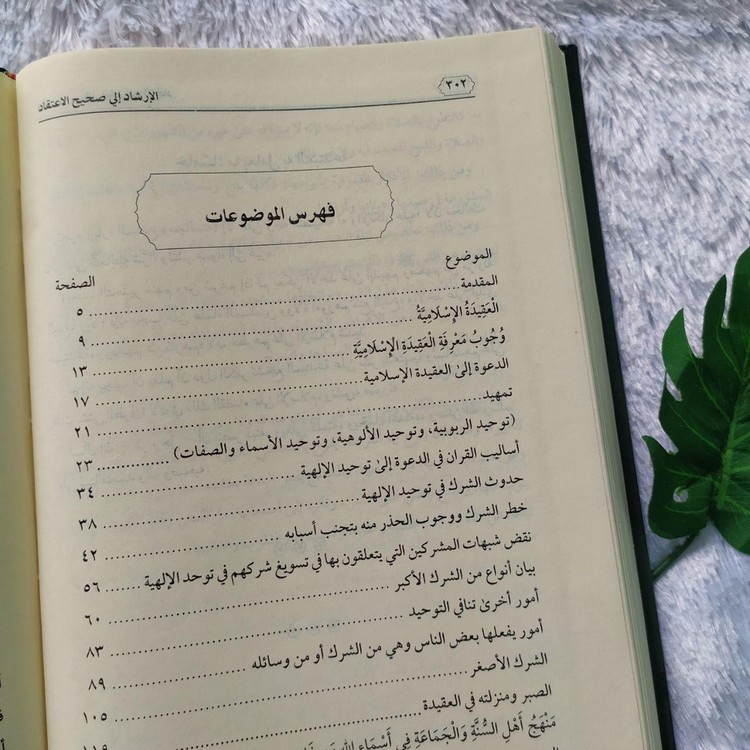 ٣٠٢ الإرشاد إلى صحيح الاعتقاد
فهرس الموضوعات
الموضوع الصفحة
المقدمة ٥
الْعَقِيدَةُ الإِسْلَامِيَّةُ ٩
وُجُوبُ مَعْرِفَةِ الْعَقِيدَةِ الإِسْلَامِيَّةِ ١٣
الدعوة إلى العقيدة الإسلامية ١٧
تمهيد ٢١
(توحيد الربوبية، وتوحيد الألوهية، وتوحيد الأسماء والصفات) ٢٣
أساليب القرآن في الدعوة إلى توحيد الإلهية ٣٤
حدوث الشرك في توحيد الإلهية ٣٨
خطر الشرك ووجوب الحذر منه بتجنب أسبابه ٤٢
نقض شبهات المشركين التي يتعلقون بها في تسويغ شركهم في توحد الإلهية ٥٦
بيان أنواع من الشرك الأكبر ٦٠
أمور أخرى تنافي التوحيد ٨٣
أمور يفعلها بعض الناس وهي من الشرك أو من وسائله ٨٩
الشرك الأصغر ١٠٥
الصبر ومنزلته في العقيدة ١١٩
مَنْهَجُ أَهْلِ السُّنَّةِ وَالْجَمَاعَةِ فِي أَسْمَاءِ اللهِ